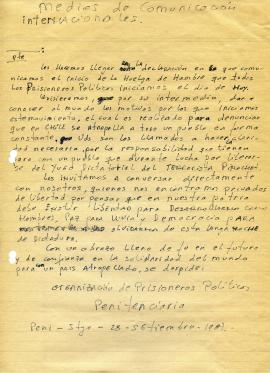 Medios de Comunicación
internacionales.
pte
Les Hacemos llegar esta declaración en la que comu-
nicamos el inicio de la Huelga de Hambre que todos
los Prisioneros Políticos iniciamos el día de Hoy.
Quisieramos, que por su intermedio, dar a
conocer al mundo los motivos por los que iniciamos
este movimiento, el cual es realizado para denunciar
que en Chile se atropella a todo un pueblo en forma
constante, que Uds son los llamados a hacer
necesaria, por la responsabilidad que tienen
para con un pueblo que durante lucha por liberar-
se del Yugo Dictatorial del Pinochet.
Les invitamos a conversar directamente
con nosotros, quienes nos encontramos privados
de libertad por pensar que en nuestra patria
debe Existir Libertad para Desarrollarnos como
Hombres, Paz para vivir y Democracia para
olvidarnos de esta larga noche
de Dictadura.
Con un abrazo lleno de fe en el futuro
y de confianza en la solidaridad del mundo
para con un país Atropellado, se despide.
Organización de Prisioneros Políticos
Penitenciaria
Peni - Stgo - 28 - Setiembre -